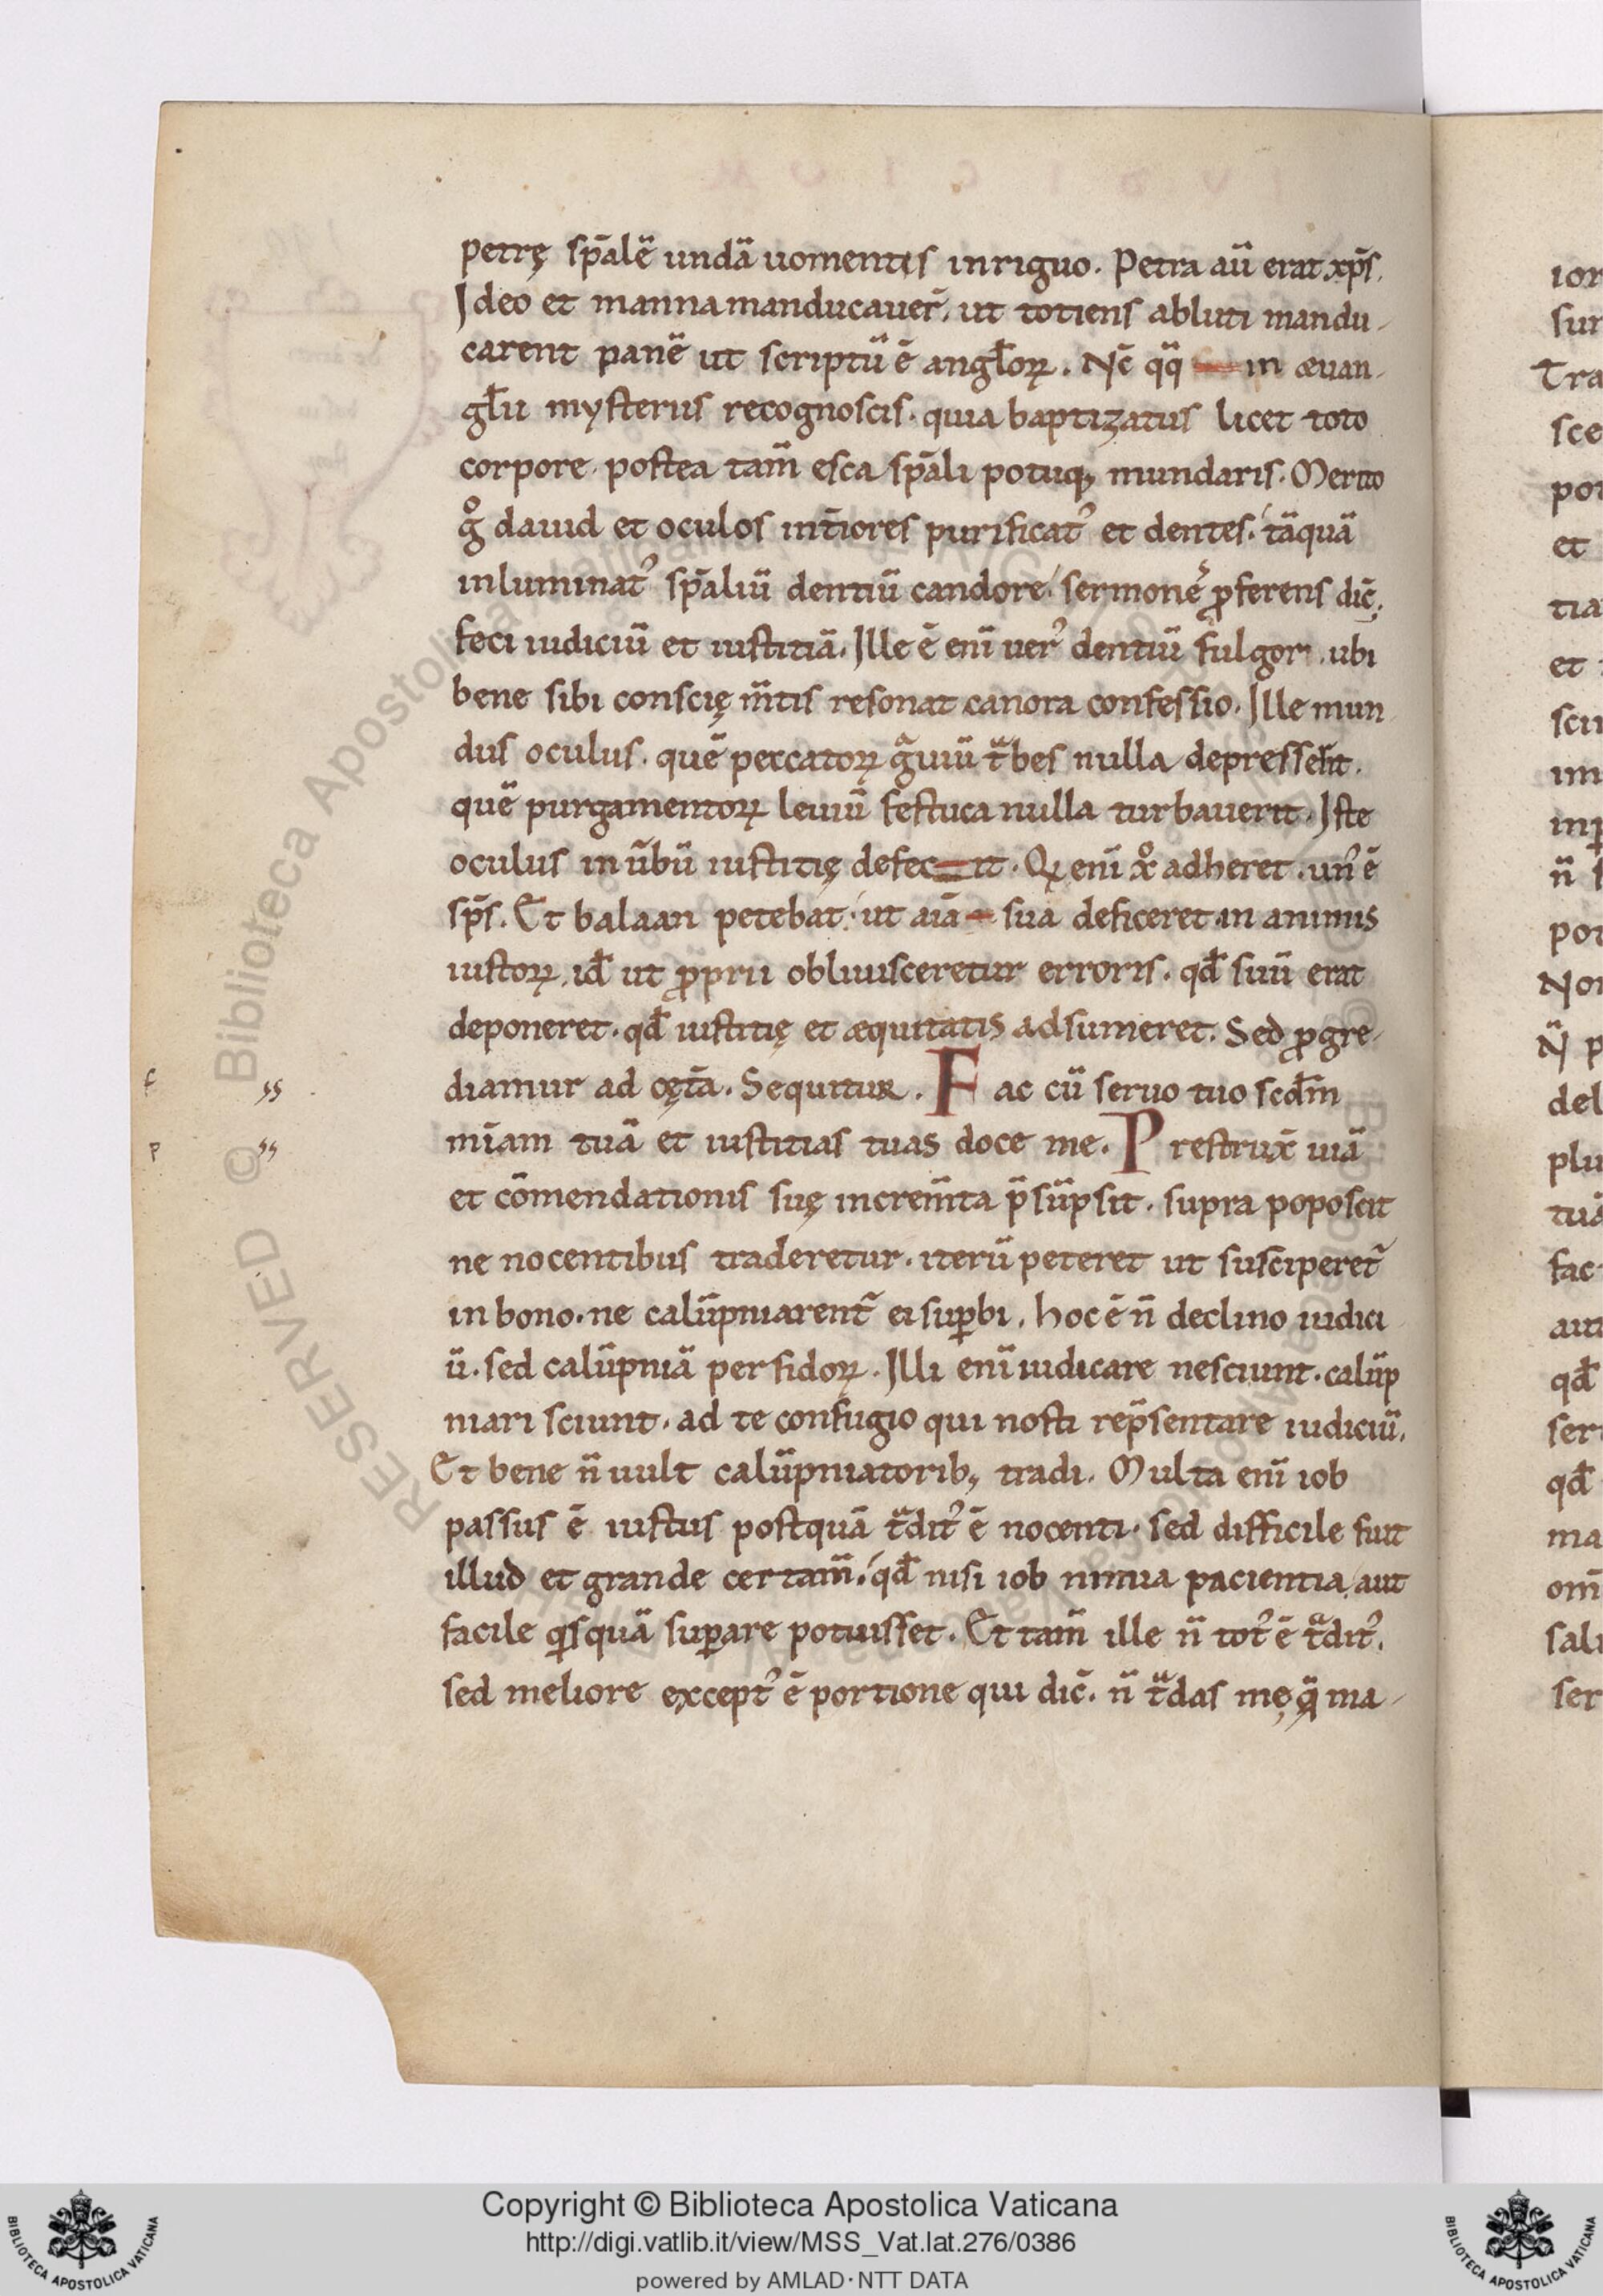 petrę sp̄alē undā uomentis inriguo. Petra aū erat xp̄s.
Ideo et manna manducauer̄. ut totiens abluti mandu-
carent panē ut scriptū ē angl̄oꝝ. Nc̄ qq̄ in æuan-
gl̄ii mysteriis recognoscis. quia baptizatus licet toto
corpore. postea tam̄ esca sp̄ali potuq; mundaris. Merito
g̊ dauid et oculos int̄iores purificat᾿ et dentes. tāquā
inluminat᾿ sp̄aliū dentiū candore. sermonē ꝓferens dic̄.
feci iudiciū et iustitiā. Ille ē eni̅ uer᾿ dentiū fulgor. ubi
bene sibi conscię m̄tis resonat canora confessio. Ille mun
dus oculus. quē peccatoꝝ gͣuiū tͣbes nulla depresserit.
quē purgamentoꝝ leuiū festuca nulla turbauerit. Iste
oculus in ūbū iustitię defecit. Qͥ eni̅ xͦ adheret. un᾿ ē
sp̄s. Et balaan petebat. ut aīā sua deficeret in animis
iustoꝝ. id̄ ut ꝓprii obliuisceretur erroris. qd̄ suū erat
deponeret. qd̄ iustitię et æquitatis adsumeret. Sed ꝓgre-
diamur ad cęt̄a. Sequitur. Fac cū seruo tuo scd̄m
f ss
mīam tuā et iustitias tuas doce me. Prestrux̄ uiā
p ss
et cōmendationis suę increm̄ta p̄sūpsit. supra poposcit
ne nocentibus traderetur. iterū peteret ut susciperet᷑
in bono. ne calūpniarent᷑ ei suꝑbi. hoc ē n̄ declino iudici
ū. sed calūpniā perfidoꝝ. Illi eni̅ iudicare nesciunt. calūp
niari sciunt. ad te confugio qui nosti rep̄sentare iudiciū.
Et bene n̄ uult calūpniatorib; tradi. Multa eni̅ iob
passus ē iustus postquā tͣdit᾿ ē nocenti. sed difficile fuit
illud et grande certam̄. qd̄ nisi iob nimia pacientia haut
facile qͥsquā suꝑare potuisset. Et tam̄ ille n̄ tot᾿ ē tͣdit᾿.
sed meliore except᾿ ē portione qui dic̄. n̄ tͣdas mę qͣ ma-
ior
sur
Tra
sce
por
et
tia
et
scu
im
inp
n̄ s
por
Nor
p
del
plu
tuā
fac
aut
qd̄
ser
qd̄
ma
om̄
salu
ser
© Biblioteca Apostolica Vaticana
RESERVED
Copyright © Biblioteca Apostolica Vaticana
http://digi.vatlib.it/view/MSS_Vat.lat.276/0386
powered by AMLAD·NTT DATA
BIBLIOTECA APOSTOLICA VATICANA
BIBLIOTECA APOSTOLICA VATICANA